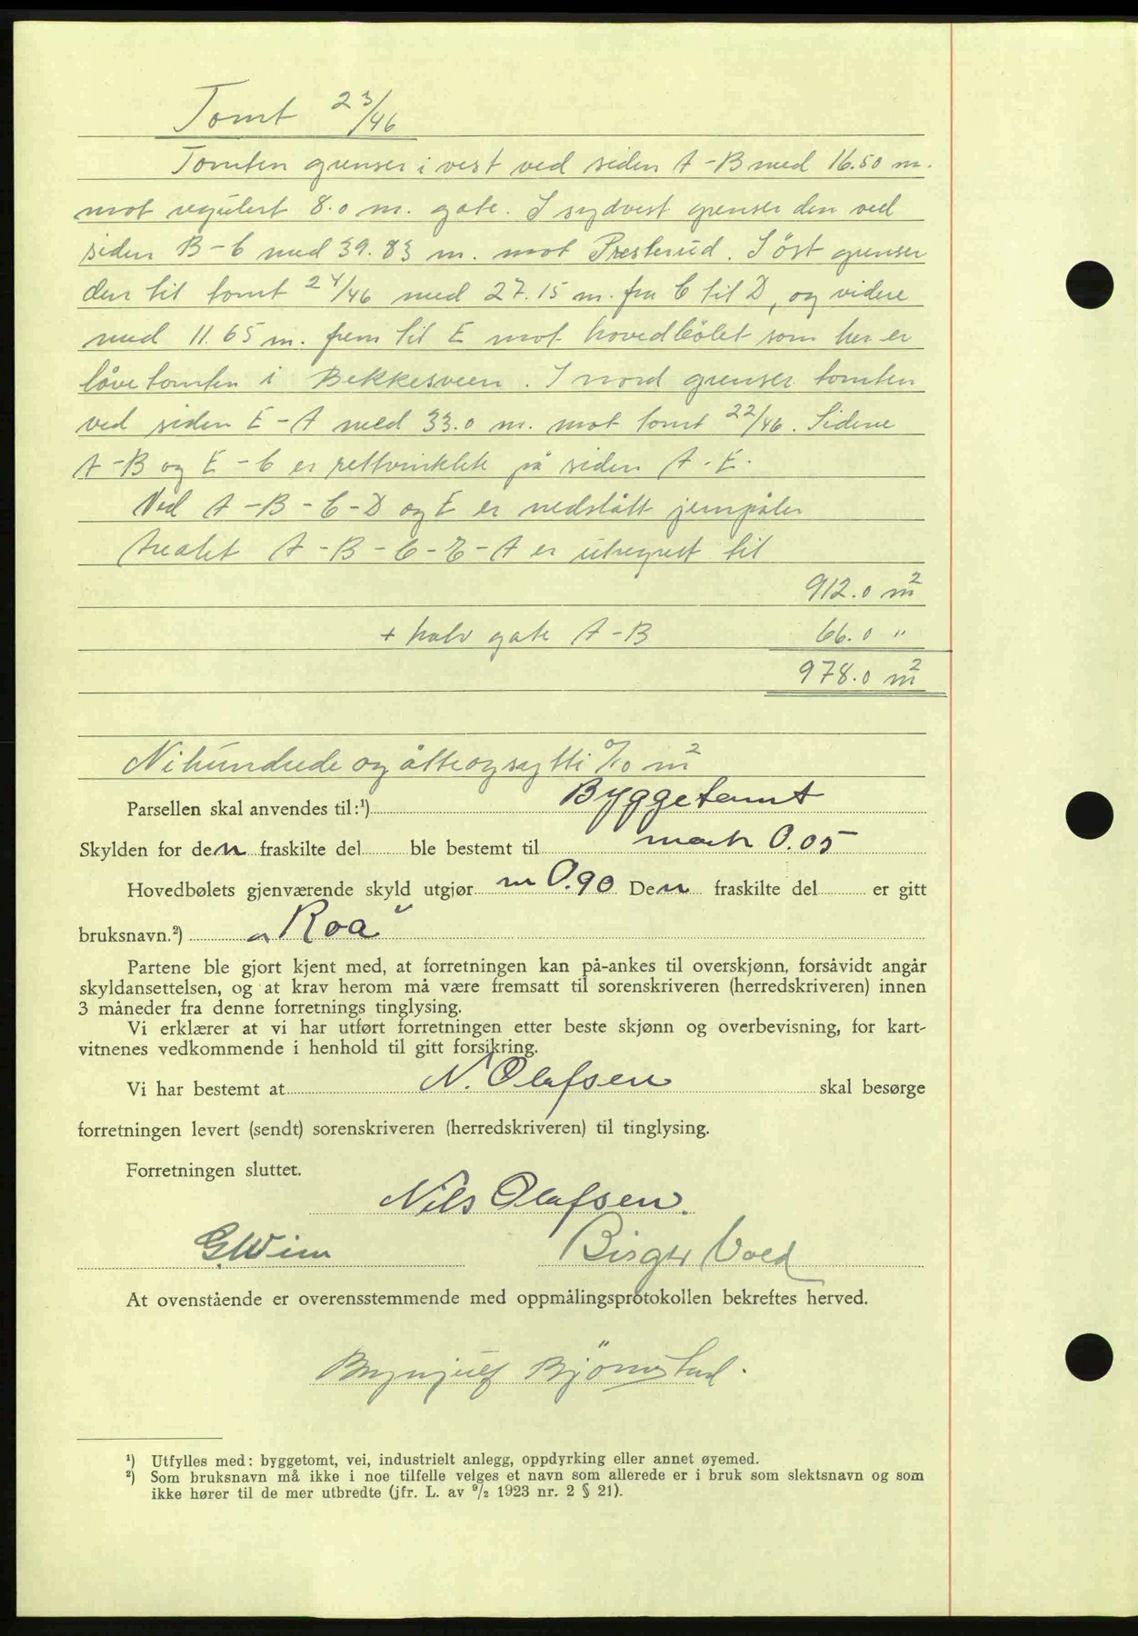 Tomt 23/46
Tomten grenser i vest ved siden A-B med 16.50 m.
mot regulert 8.0 m. gate. I sydvest grenser den ved
siden B-C med 39.83 m. mot Presterud. I öst grenser
den til tomt 24/46 med 27.15 m. fra C til D, og videre
med 11.65 m. frem til E mot hovedbölet som her er
låvetomten i Bekkesveen. I nord grenser tomten
ved siden E-A med 33.0 m. mot tomt 22/46. Sidene
A-B og E-C er rettvinklete på siden A-E.
Ved A-B-C-D og E er nedslått jernpåler
Arealet A-B-C-E-A er utregnet til
912.0 m²
+ halv gate A-B 66.0 "
978.0 m²
Nihundrede og åtteogsytti 0/10 m²
Parsellen skal anvendes til:¹) Byggetomt
Skylden for den fraskilte del ble bestemt til mark 0.05
Hovedbølets gjenværende skyld utgjør m 0.90 Den fraskilte del er gitt
bruksnavn.²) "Roa"
Partene ble gjort kjent med, at forretningen kan på-ankes til overskjønn, forsåvidt angår
skyldansettelsen, og at krav herom må være fremsatt til sorenskriveren (herredskriveren) innen
3 måneder fra denne forretnings tinglysing.
Vi erklærer at vi har utført forretningen etter beste skjønn og overbevisning, for kart-
vitnenes vedkommende i henhold til gitt forsikring.
Vi har bestemt at N. Olafsen skal besørge
forretningen levert (sendt) sorenskriveren (herredskriveren) til tinglysing.
Forretningen sluttet.
Nils Olafsen.
G. Wiin Birger Vold
At ovenstående er overensstemmende med oppmålingsprotokollen bekreftes herved.
Brynjulf Björnstad.
¹) Utfylles med: byggetomt, vei, industrielt anlegg, oppdyrking eller annet øyemed.
²) Som bruksnavn må ikke i noe tilfelle velges et navn som allerede er i bruk som slektsnavn og som
ikke hører til de mer utbredte (jfr. L. av 9/2 1923 nr. 2 § 21).